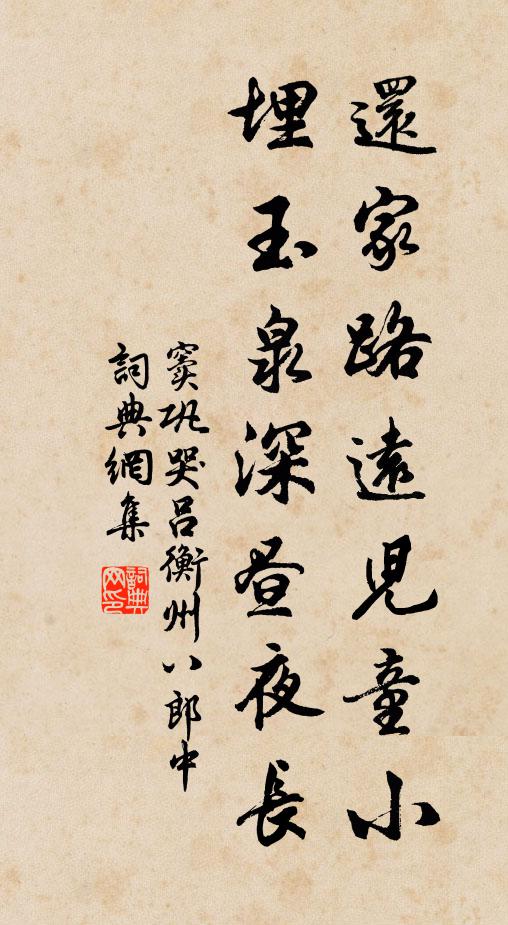 還家路遠兒童小
埋玉泉深昼夜長
窦巩哭吕衡州八郎中
詞典網集
詞典
网印